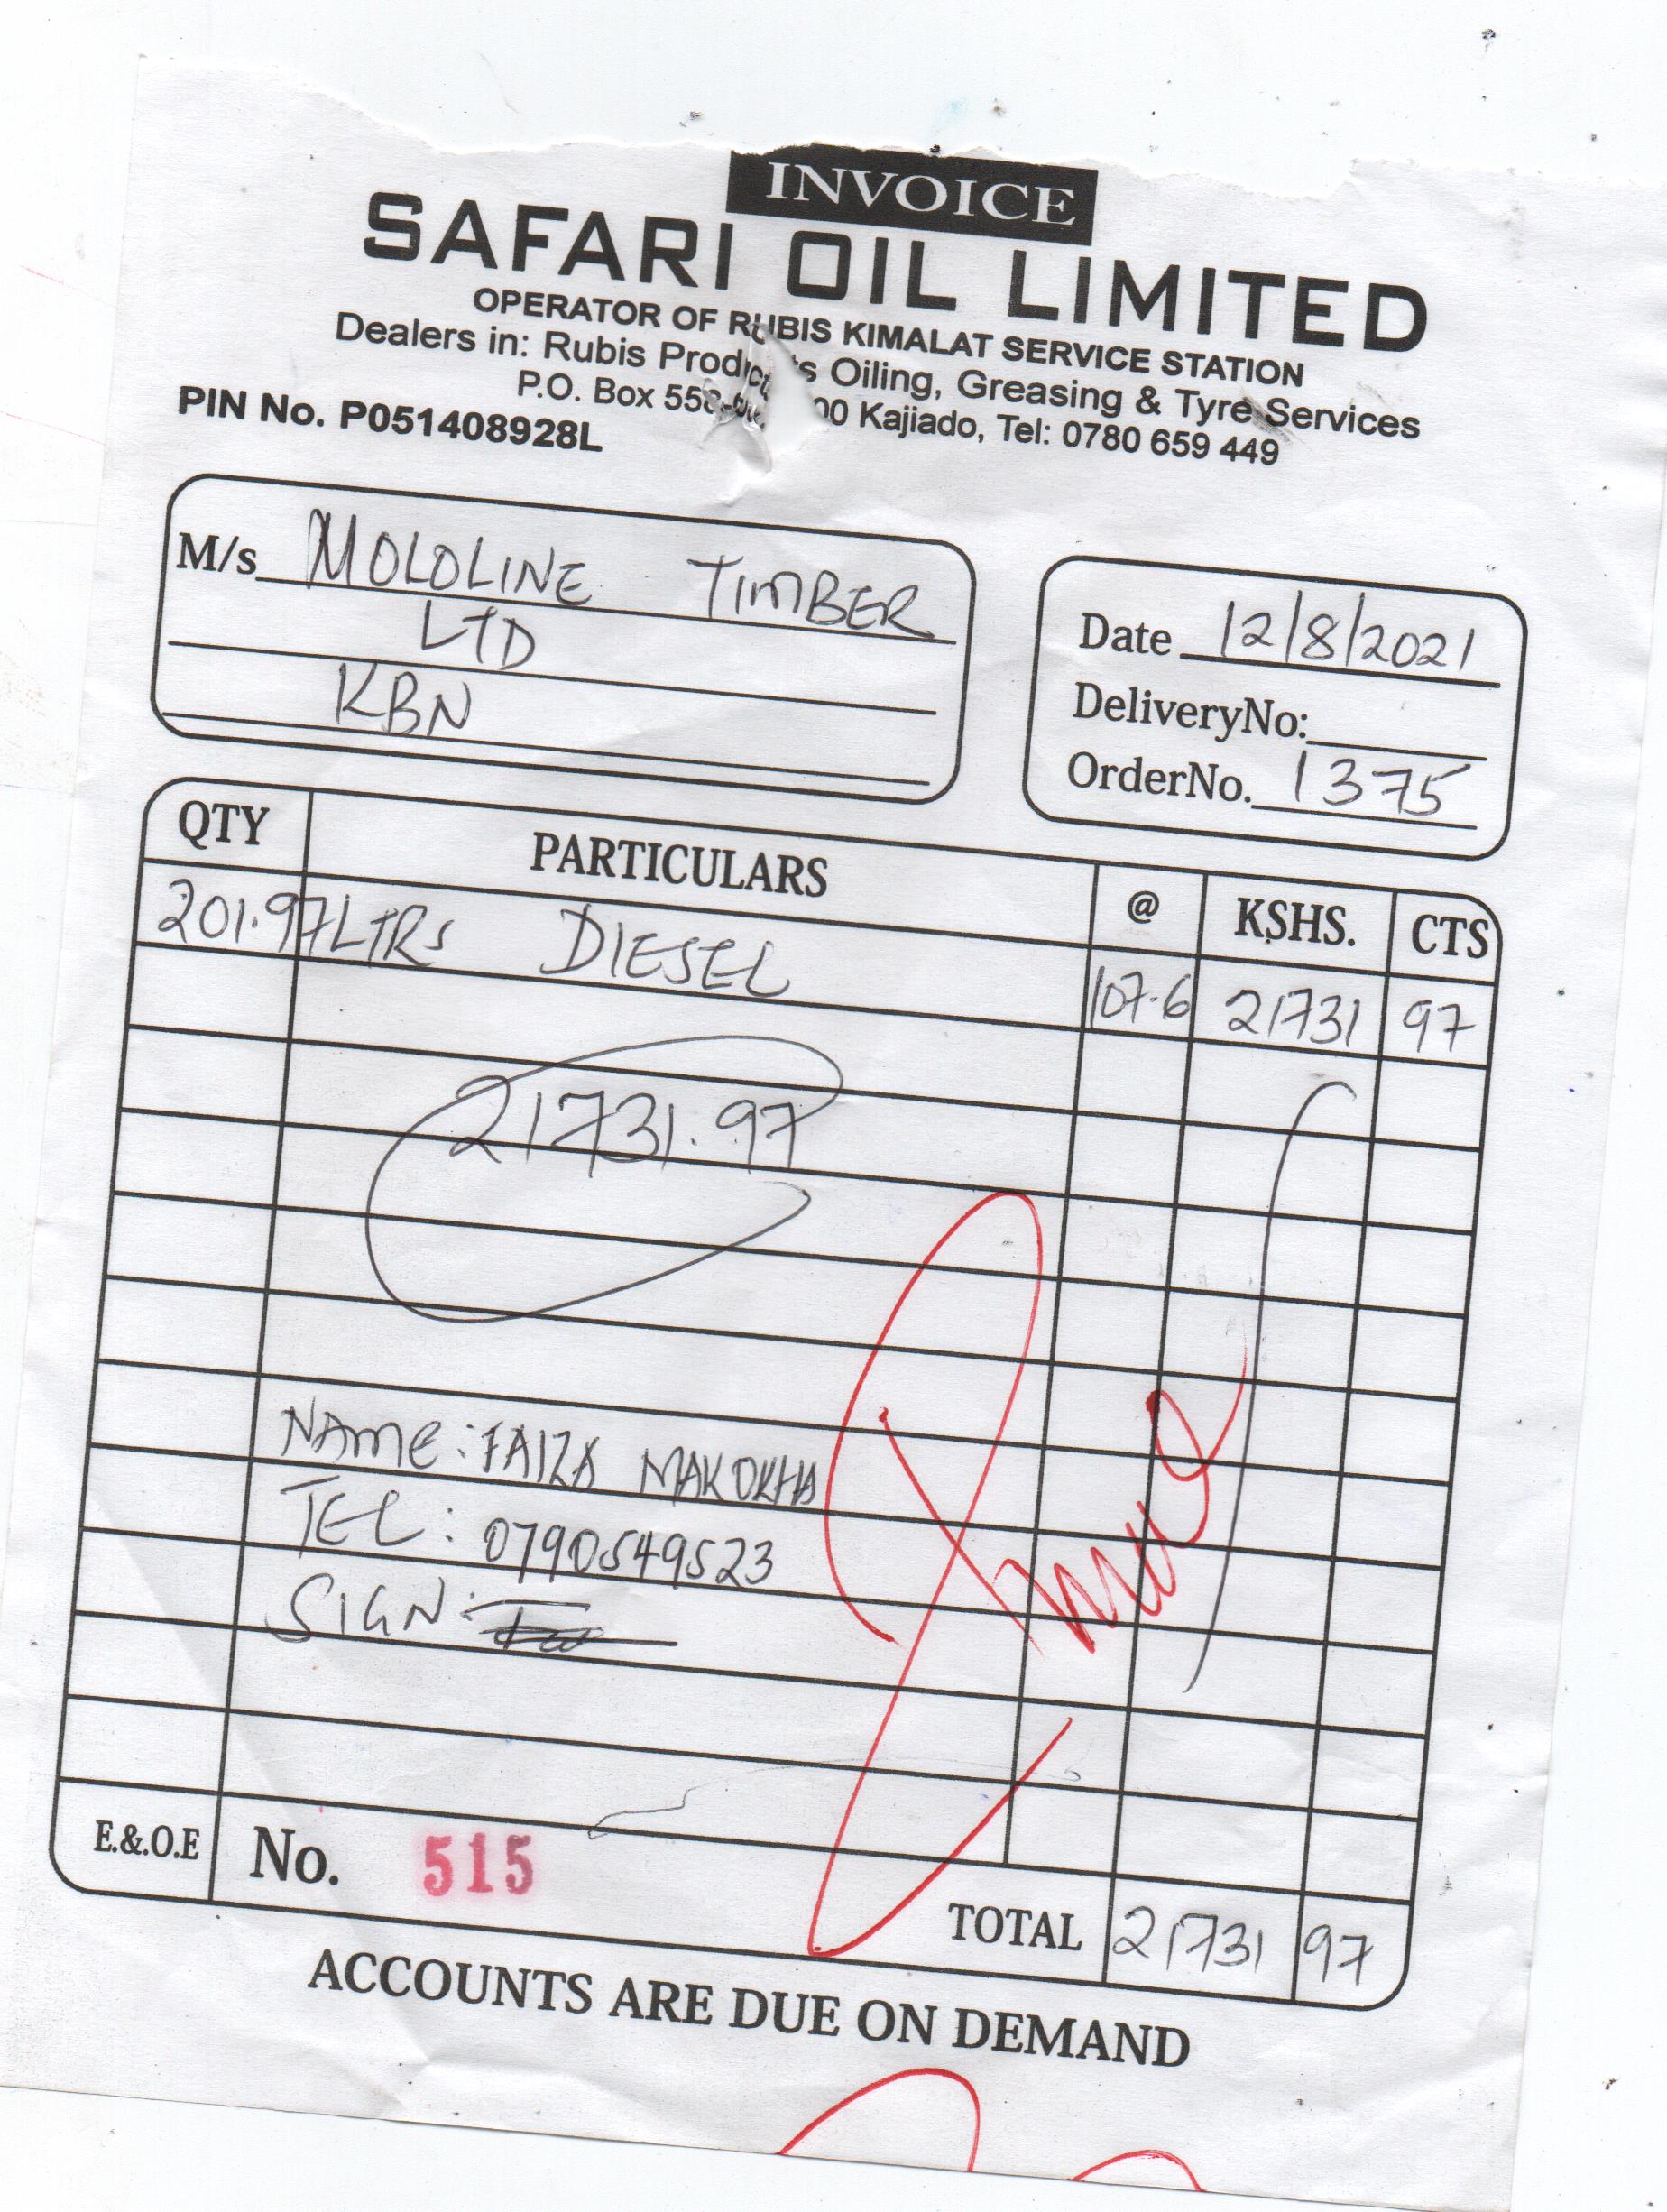 INVOICE
SAFARI OIL LIMITED
OPERATOR OF RUBIS KIMALAT SERVICE STATION
Dealers in: Rubis Products Oiling, Greasing & Tyre Services
P.O. Box 00 Kajiado, Tel: 0780 659 449
PIN No. P051408928L
M/s MOLOLINE TIMBER
LTD
KBN
Date 12/8/2021
DeliveryNo:
OrderNo. 1375
QTY PARTICULARS @ KSHS. CTS
201.97LTRS DIESEL 107.6 21731 97
21731.97
NAME: FAIZA MAKOKHA
TEL: 0790549523
SIGN:
E.&.O.E No. 515
TOTAL 21731 97
ACCOUNTS ARE DUE ON DEMAND